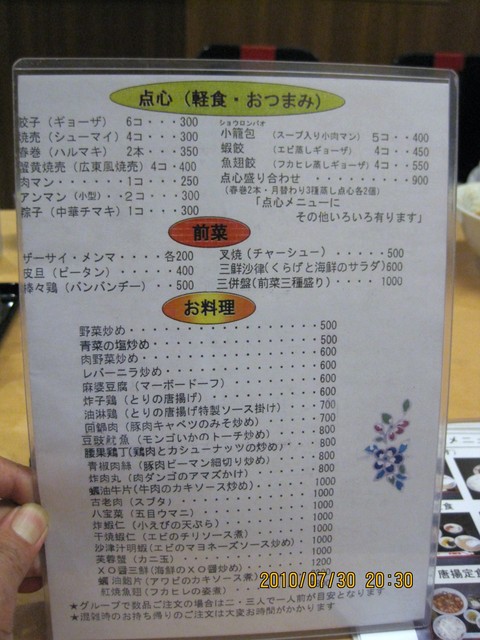 点心（軽食・おつまみ）
餃子（ギョーザ） 6コ・・・300
焼売（シューマイ） 4コ・・・300
春巻（ハルマキ） 2本・・・350
蟹黄焼売（広東風焼売）4コ・400
肉マン・・・・・・1コ・・・250
アンマン（小型）・・2コ・・・300
粽子（中華チマキ）1コ・・・300
ショウロンパオ
小籠包（スープ入り小肉マン） 5コ・・400
蝦餃（エビ蒸しギョーザ） 4コ・・450
魚翅餃（フカヒレ蒸しギョーザ）4コ・・550
点心盛り合わせ・・・・・・・・・・900
（春巻2本・月替わり3種蒸し点心各2個）
「点心メニューに
その他いろいろ有ります」
前菜
ザーサイ・メンマ・・・・各200
皮旦（ピータン）・・・・・400
棒々鶏（バンバンヂー）・・500
叉焼（チャーシュー）・・・・・500
三鮮沙律（くらげと海鮮のサラダ）600
三併盤（前菜三種盛り）・・・・1000
お料理
野菜炒め・・・・・・・・・・・・・500
青菜の塩炒め・・・・・・・・・・・500
肉野菜炒め・・・・・・・・・・・・600
レバーニラ炒め・・・・・・・・・・600
麻婆豆腐（マーボードーフ）・・・・600
炸子鶏（とりの唐揚げ）・・・・・・600
油淋鶏（とりの唐揚げ特製ソース掛け）・・700
回鍋肉（豚肉キャベツのみそ炒め）・・・700
豆豉魷魚（モンゴいかのトーチ炒め）・・・800
腰果鶏丁（鶏肉とカシューナッツの炒め）・・800
青椒肉絲（豚肉ピーマン細切り炒め）・・・800
炸肉丸（肉ダンゴのアマズかけ）・・・・800
蠣油牛片（牛肉のカキソース炒め）・・・1000
古老肉（スブタ）・・・・・・・・1000
八宝菜（五目ウマニ）・・・・・・1000
炸蝦仁（小えびの天ぷら）・・・・1000
干焼蝦仁（エビのチリソース煮）・・・1000
沙津汁明蝦（エビのマヨネーズソース炒め）・1000
芙蓉蟹（カニ玉）・・・・・・・1000
XO醤三鮮（海鮮のXO醤炒め）・・・1200
蠣油鮑片（アワビのカキソース煮）
紅焼魚翅（フカヒレの姿煮）
★グループで数品ご注文の場合は二・三人で一人前が目安となります
★混雑時のお持ち帰りのご注文は大変お時間がかかります
2010/07/30 20:30
メニ
唐揚定食